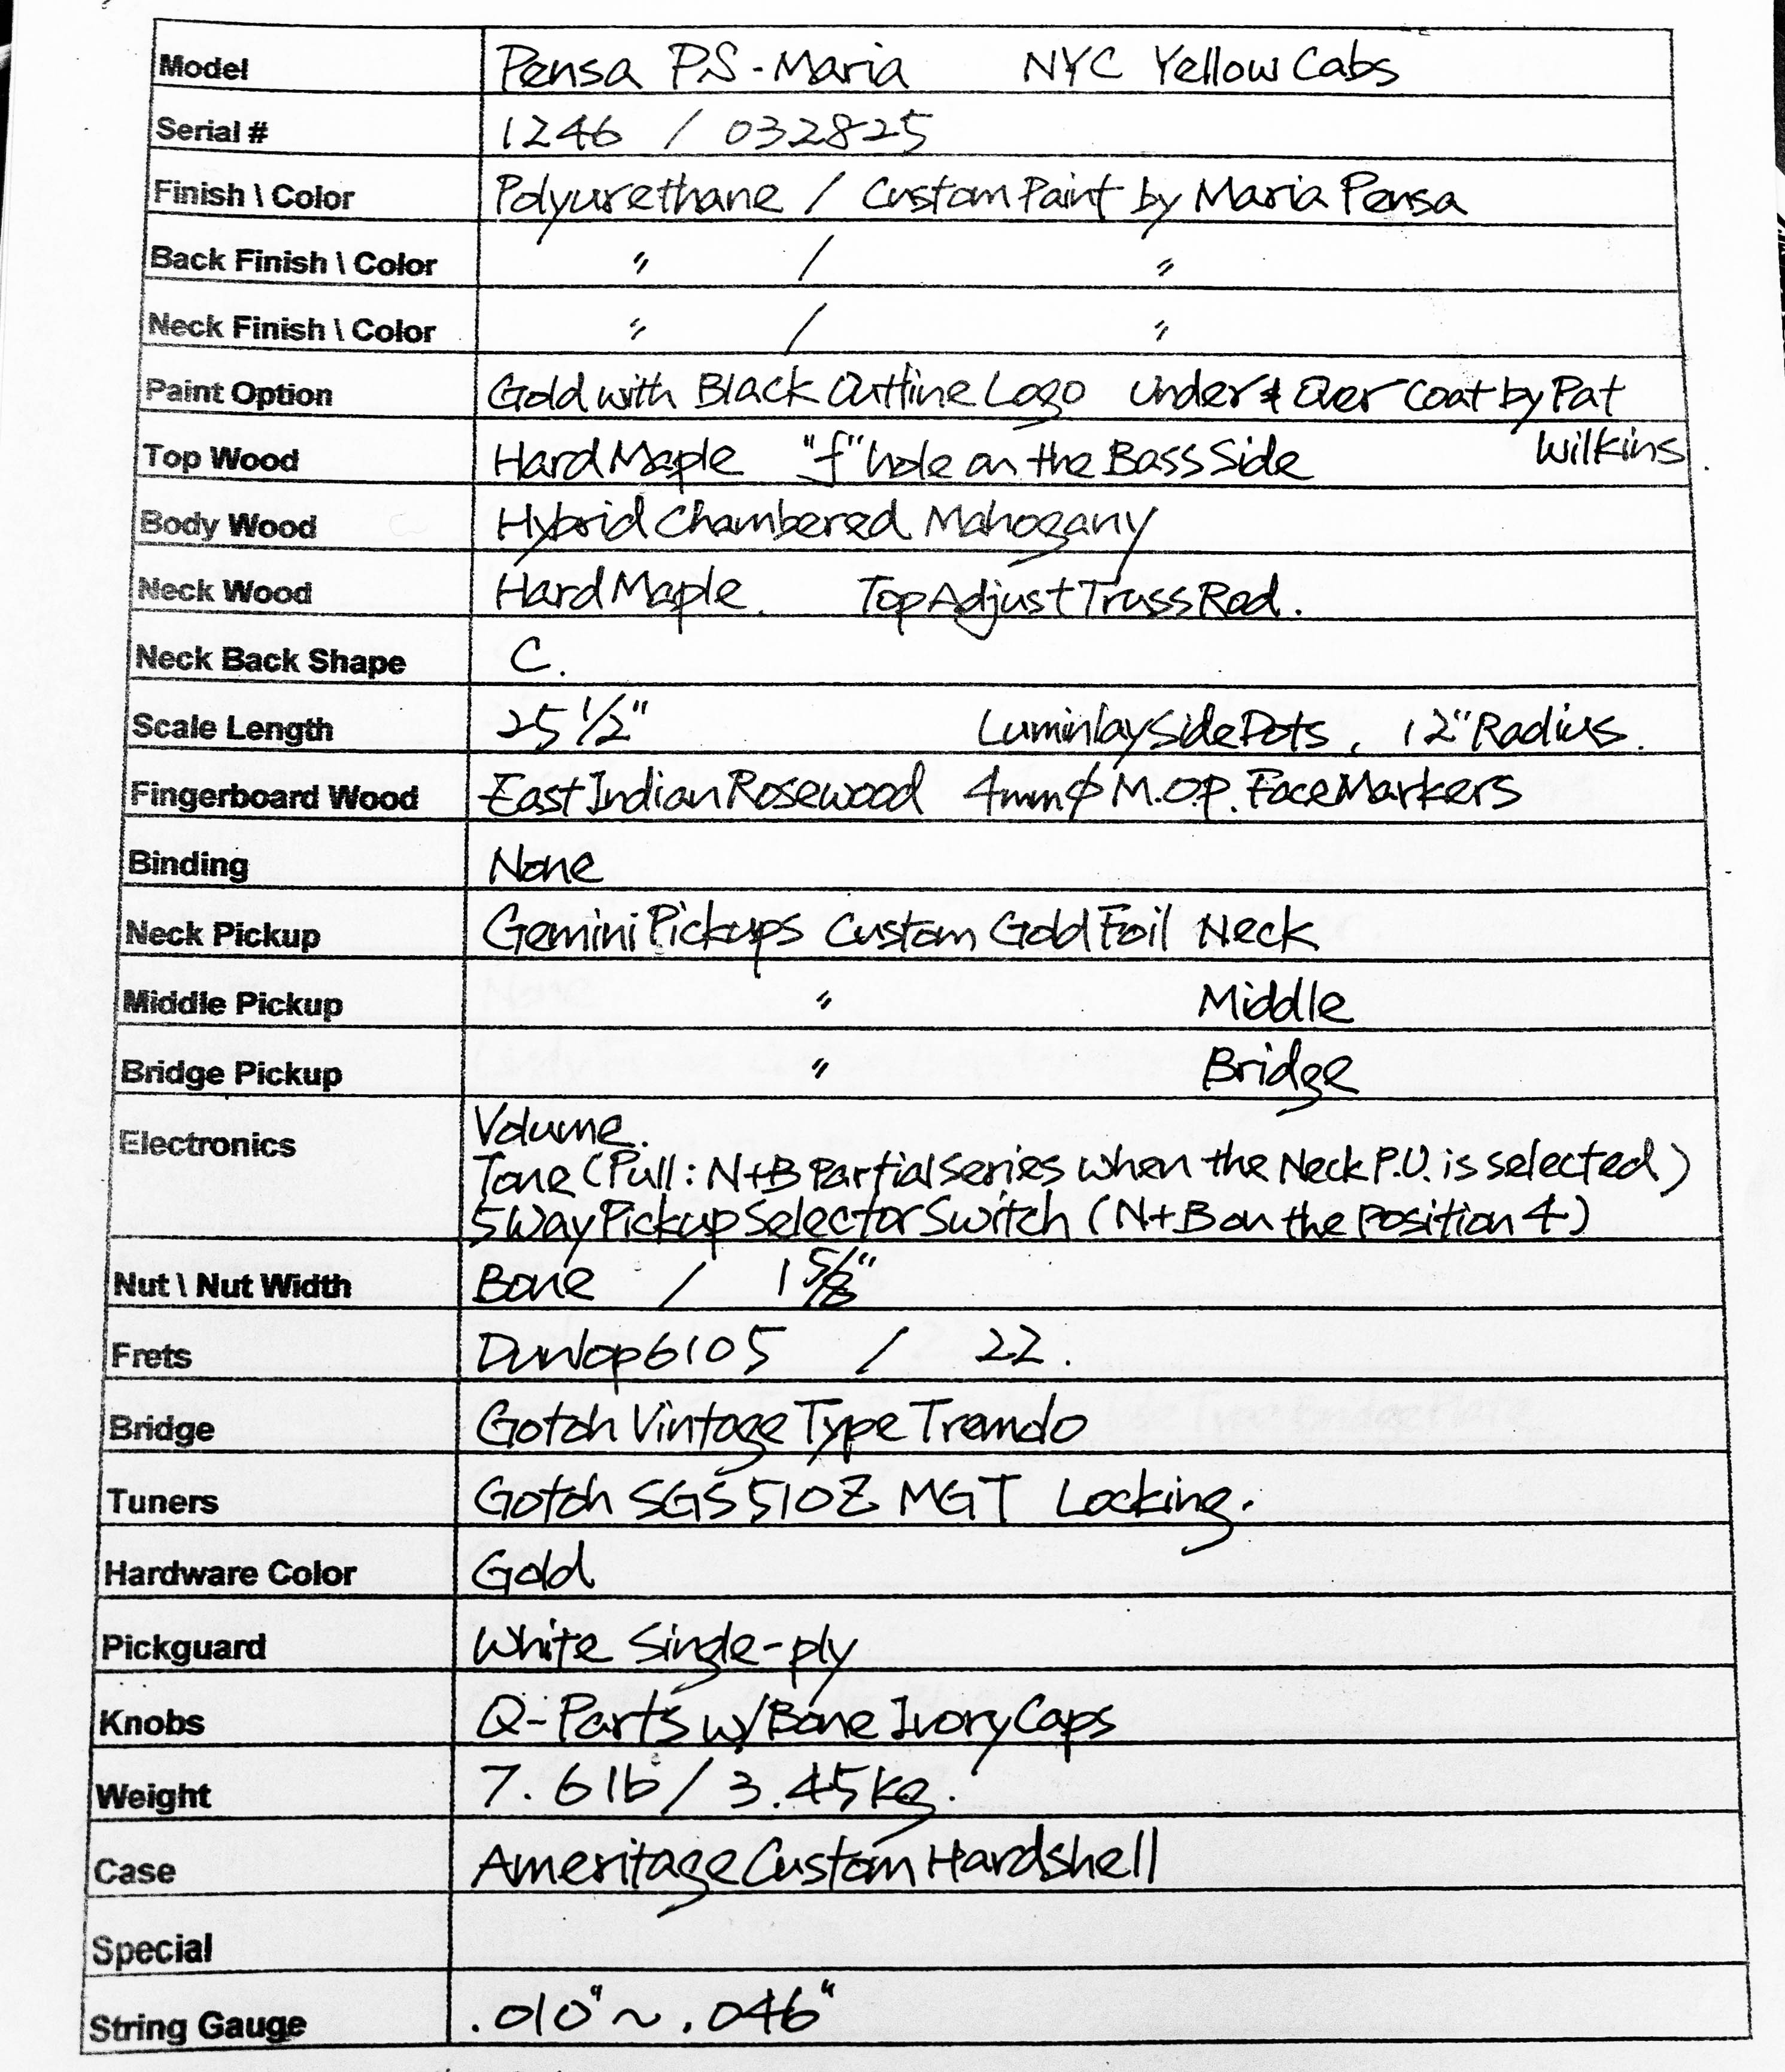 Model Pensa P.S-Maria NYC Yellow Cabs
Serial # 1246 / 032825
Finish \ Color Polyurethane / Custom Paint by Maria Pensa
Back Finish \ Color " / "
Neck Finish \ Color " / "
Paint Option Gold with Black Outline Logo Under & Over Coat by Pat
Wilkins.
Top Wood Hard Maple "f" hole on the Bass Side
Body Wood Hybrid Chambered Mahogany
Neck Wood Hard Maple. Top Adjust Truss Rod.
Neck Back Shape C.
Scale Length 25 1/2" Luminlay Side Dots, 12" Radius.
Fingerboard Wood East Indian Rosewood 4mmφ M.O.P. Face Markers
Binding None
Neck Pickup Gemini Pickups Custom Gold Foil Neck
Middle Pickup " Middle
Bridge Pickup " Bridge
Electronics Volume.
Tone (Pull: N+B Partial Series when the Neck P.U. is selected)
5 Way Pickup Selector Switch (N+B on the Position 4)
Nut \ Nut Width Bone / 1 5/8"
Frets Dunlop 6105 / 22.
Bridge Gotoh Vintage Type Tremolo
Tuners Gotoh SGS510Z MGT Locking.
Hardware Color Gold
Pickguard White Single-ply
Knobs Q-Parts w/Bone Ivory Caps
Weight 7.6 lb / 3.45kg.
Case Ameritage Custom Hardshell
Special
String Gauge .010" ~ .046"